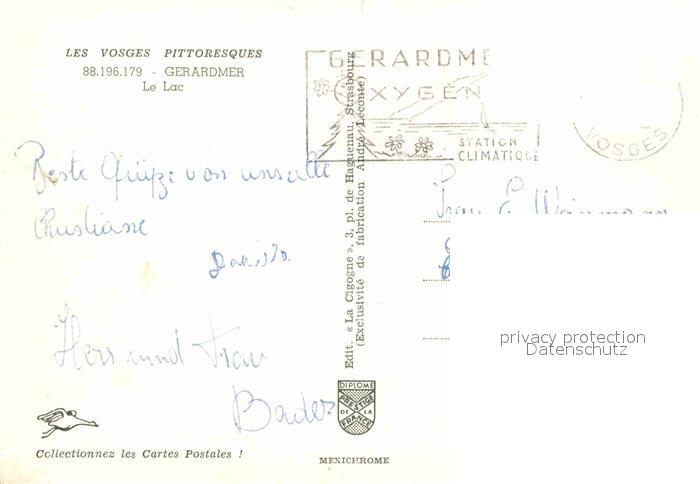 LES VOSGES PITTORESQUES
88.196.179 - GERARDMER
Le Lac
GERARDME
OXYGEN
STATION
CLIMATIQUE
VOSGES
Beste Grüße von uns alle
Christiane
Daniela
Herr und Frau
Bader
Frau E. Weinmann
Edit. « La Cigogne », 3, pl. de Haguenau, Strasbourg
(Exclusivité de fabrication André Leconte)
privacy protection
Datenschutz
DIPLOME
PRESTIGE
DE LA
FRANCE
Collectionnez les Cartes Postales !
MEXICHROME